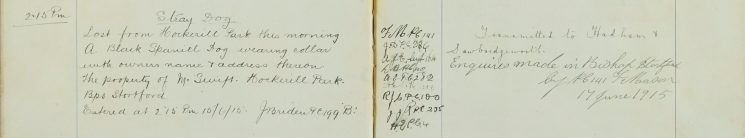 2.15 Pm
Stray Dog
Lost from Hockerill Park this morning
A Black Spaniell Dog wearing collar
with owners name & address thereon
The property of Mr Swift. Hockerill Park.
Bps Stortford
Entered at 2.15 Pm 15/6/15. J Briden PC 199 B.
F.M PC 141
PC 284
PC 212
R/S PC 100
PC 225
Transmitted to Hadham &
Sawbridgeworth.
Enquires made in Bishop Stortford
by PC 141 F. Mason
17 June 1915